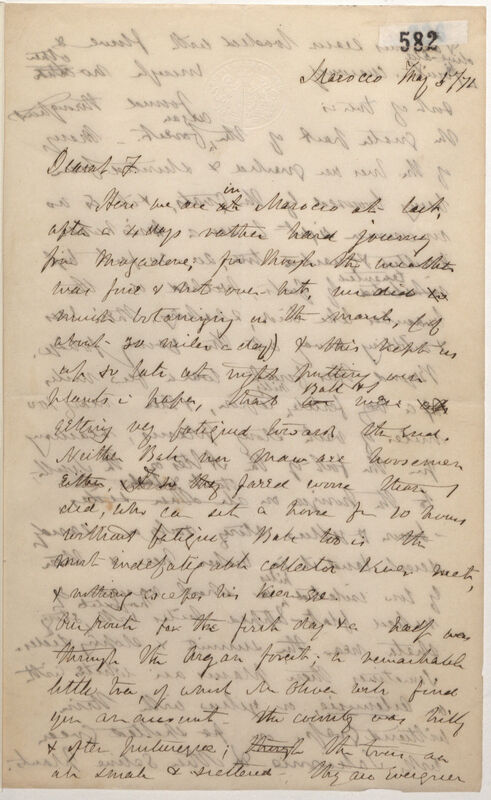 582
Marocco May 5/71
Dearest F.
Here we are in Marocco at last,
after a 4 days rather hard journey
from Magadore; for though the weather
was fine & not over-hot, we did so
much botanizing on the march, (of
about 30 miles a day) & this kept us
up so late at night putting our
plants in paper, that Ball & I were
getting very fatigued towards the end.
Neither Ball nor Maw are horsemen
either, & so they fared worse than I
did, who can sit a horse for 10 hours
without fatigue. Ball too is the
most indefatigable collector I ever met,
& nothing escapes his keen eye
Our route for the first day & a half was
through the Argan forest; a remarkable
little tree, of which Mr Oliver will find
you an account. The country was hilly
& often picturesque; the trees are
all small & scattered. They are evergreen